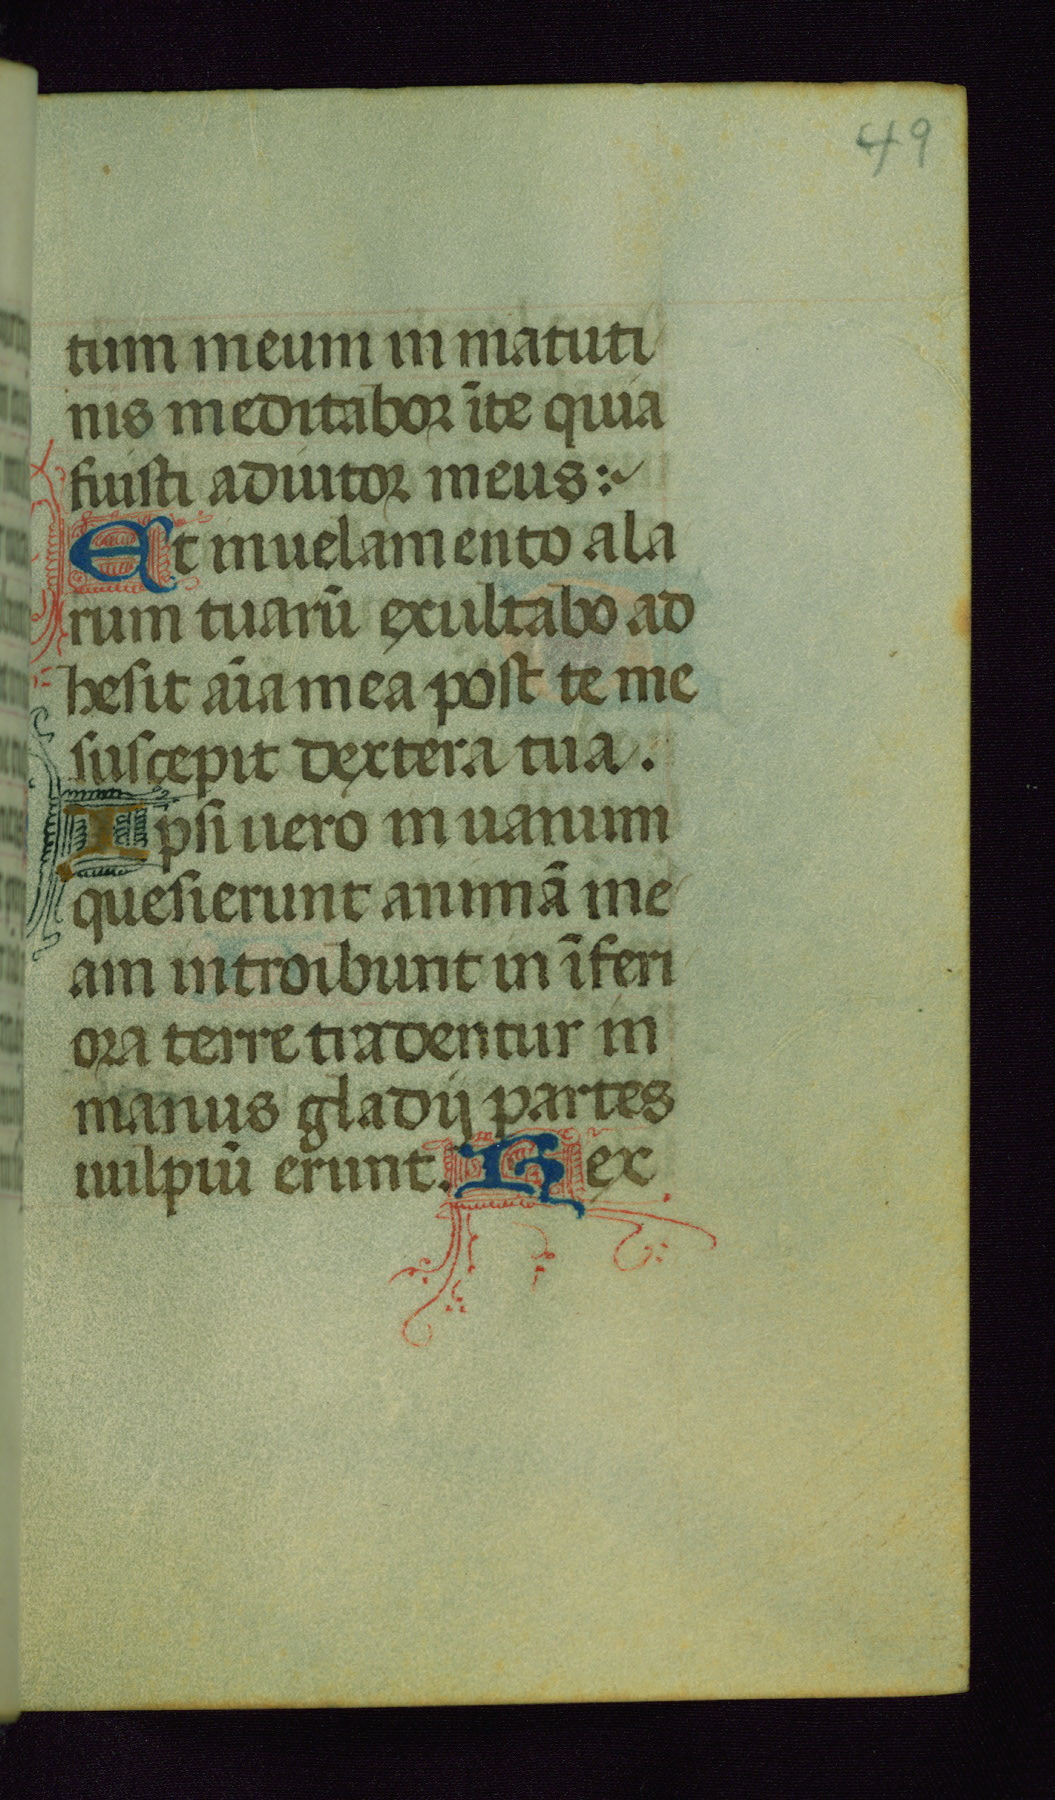 49
tum meum in matuti
nis meditabor īte quia
fuisti adiutor meus:~
Et inuelamento ala
rum tuarū exultabo ad
hesit aīa mea post te me
suscepit dextera tua.
Ipsi uero in uanum
quesierunt animā me
am introibunt in īferi
ora terre tradentur in
manus gladij partes
uulpiū erunt. Rex